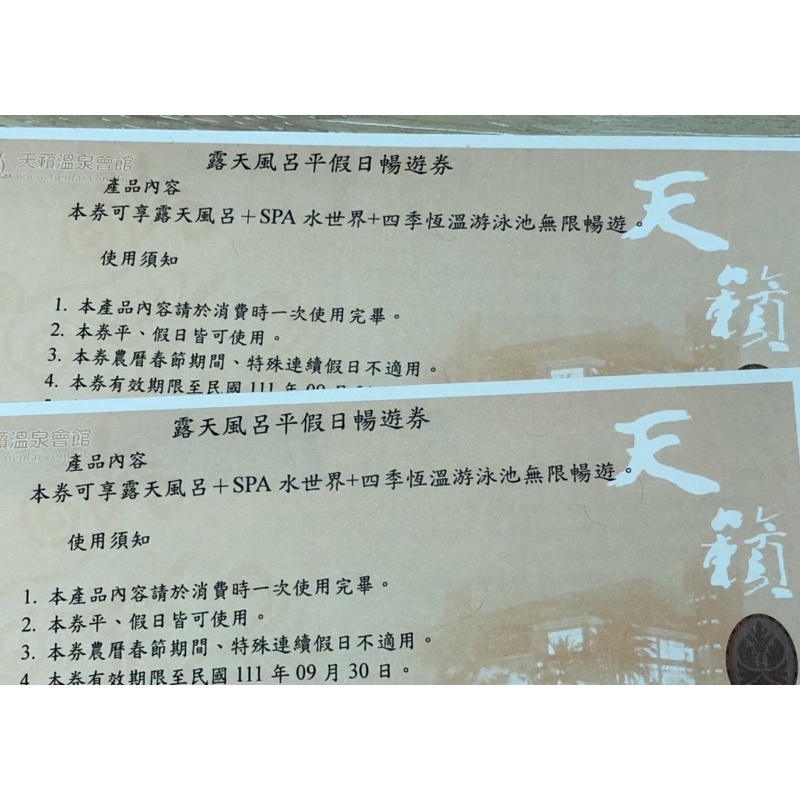 天籟溫泉會館
www.tienlai.com.tw
露天風呂平假日暢遊券
產品內容
本券可享露天風呂+SPA 水世界+四季恆溫游泳池無限暢遊。
使用須知
1. 本產品內容請於消費時一次使用完畢。
2. 本券平、假日皆可使用。
3. 本券農曆春節期間、特殊連續假日不適用。
4. 本券有效期限至民國 111 年 09 月
天籟
籟溫泉會館
露天風呂平假日暢遊券
產品內容
本券可享露天風呂+SPA 水世界+四季恆溫游泳池無限暢遊。
使用須知
1. 本產品內容請於消費時一次使用完畢。
2. 本券平、假日皆可使用。
3. 本券農曆春節期間、特殊連續假日不適用。
4. 本券有效期限至民國 111 年 09 月 30 日。
天籟